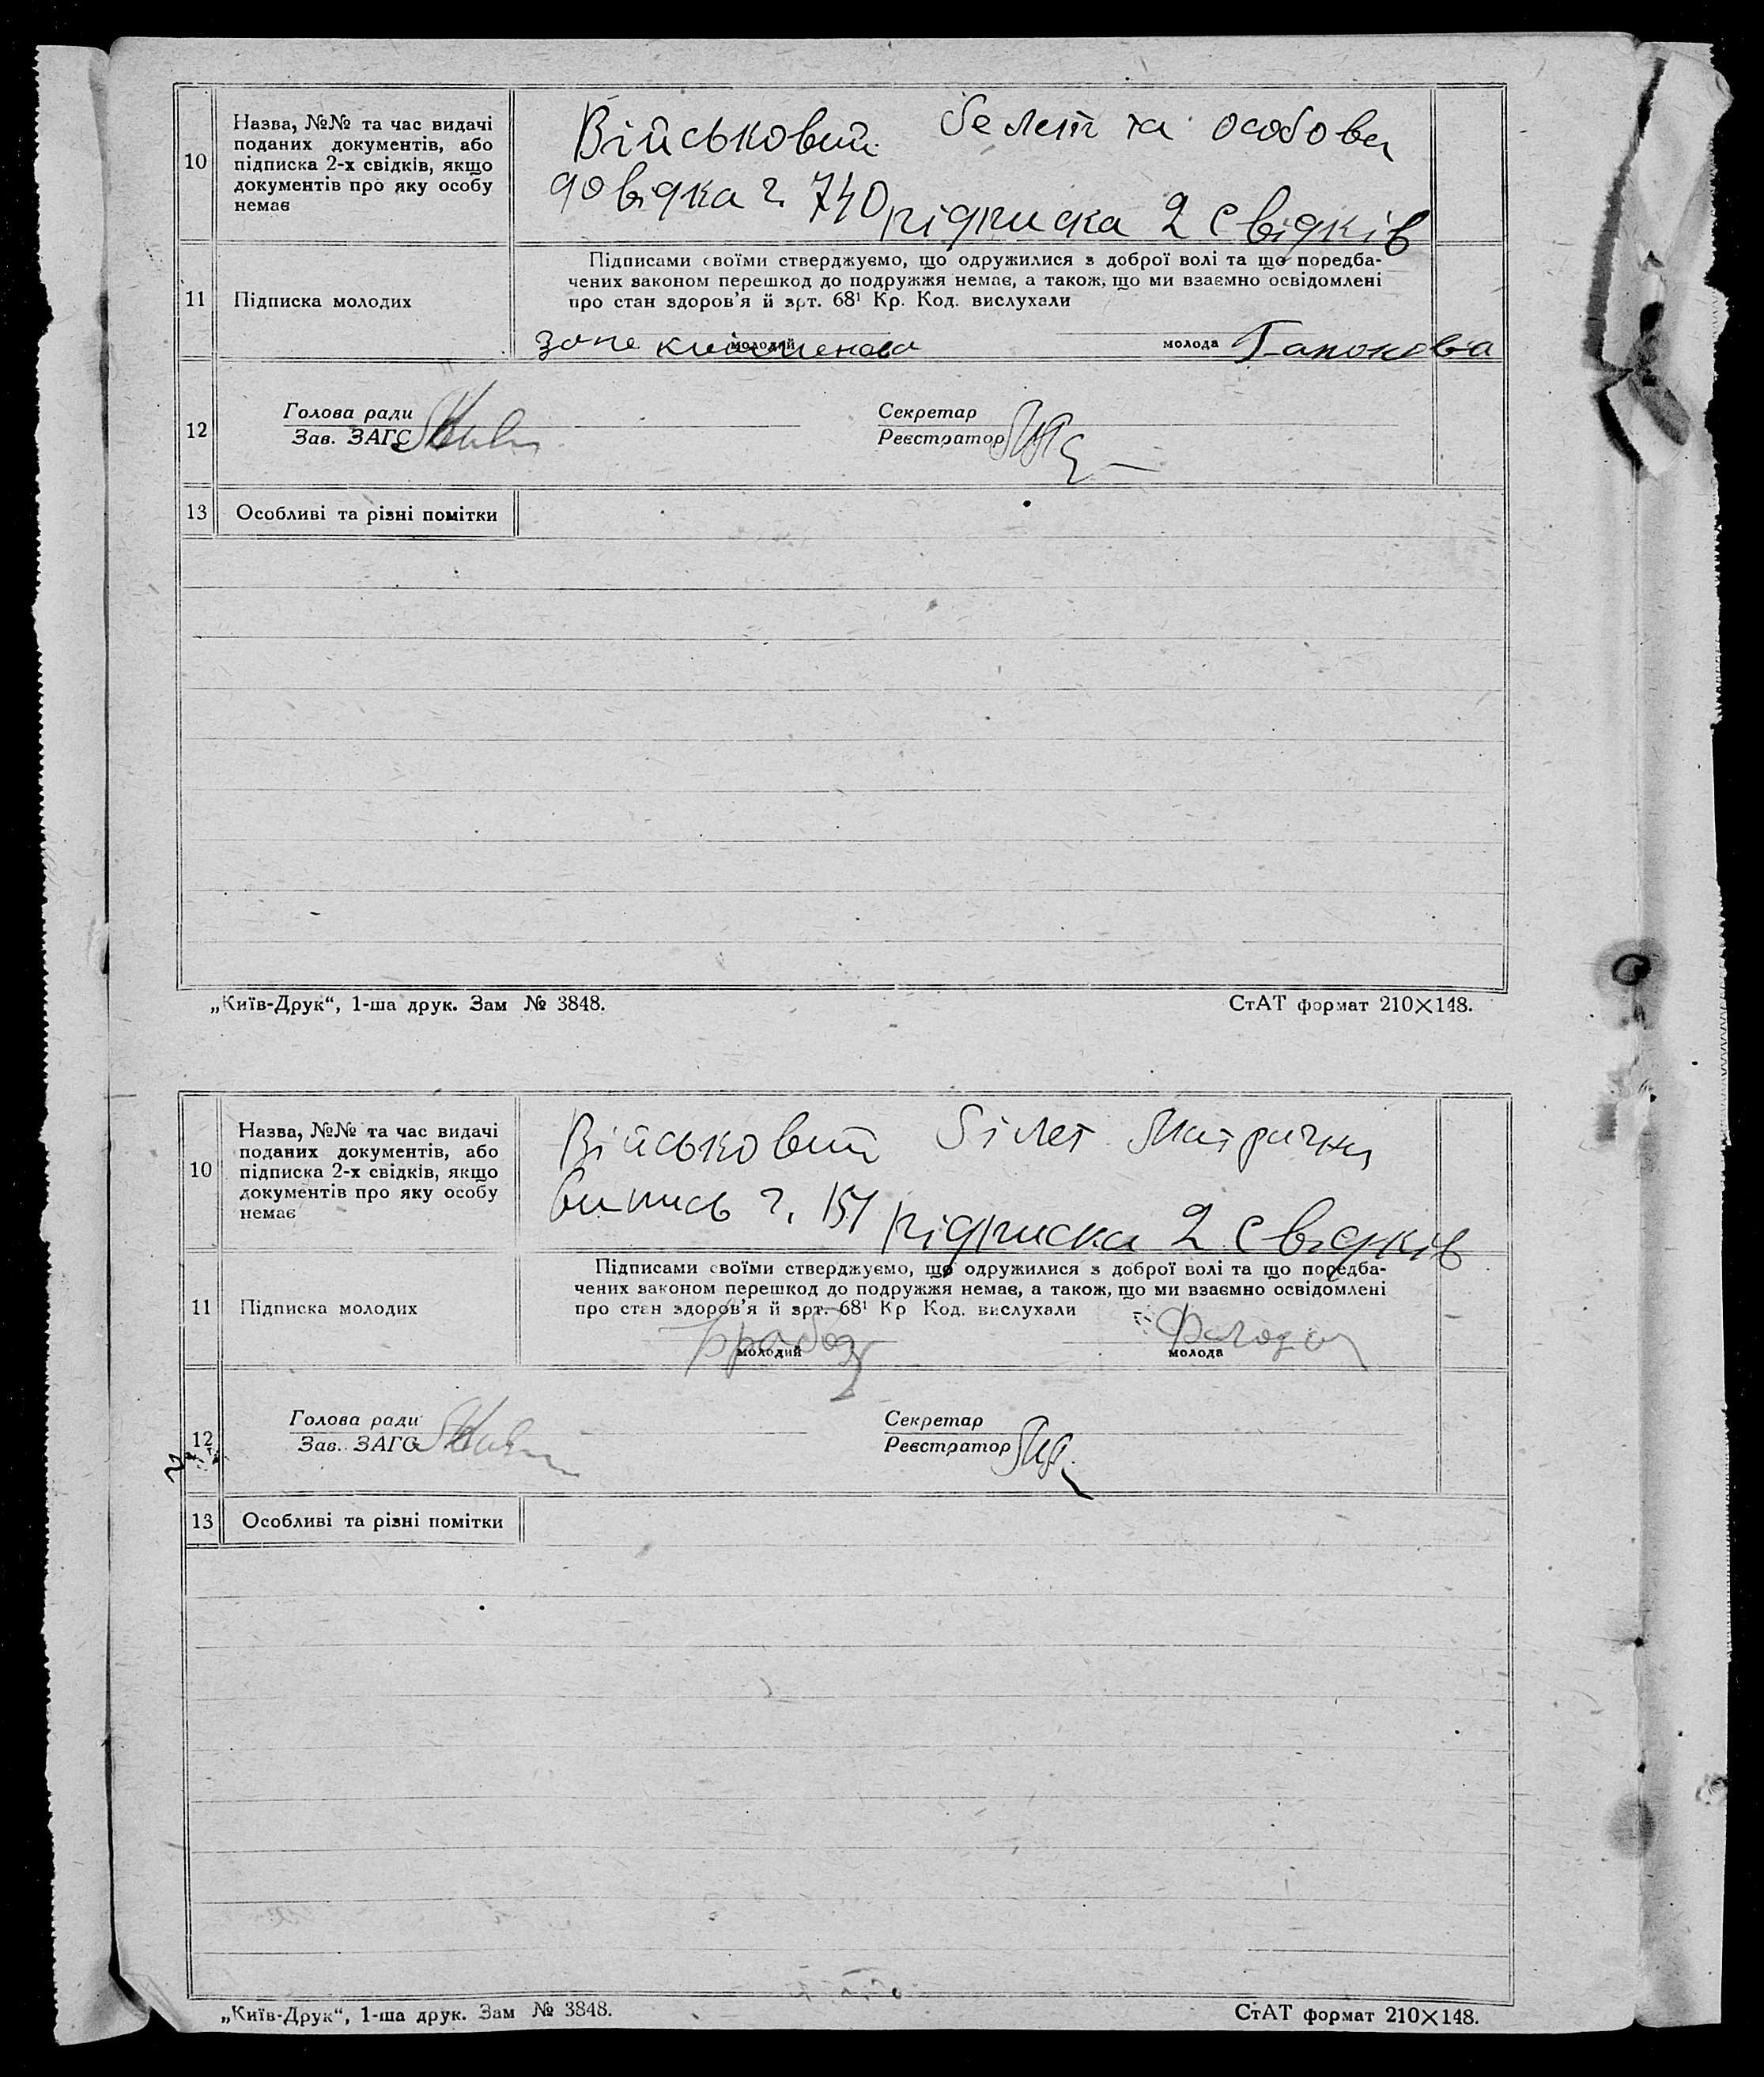 10
Назва, №№ та час видачі
поданих документів, або
підписка 2-х свідків, якщо
документів про яку особу
немає
Військовий белет та особова
довідка ч. 740 підписка 2 свідків
11
Підписка молодих
Підписами своїми стверджуємо, що одружилися з доброї волі та що поредба-
чених законом перешкод до подружжя немає, а також, що ми взаємно освідомлені
про стан здоров'я й арт. 68¹ Кр. Код. вислухали
молодий
молода Гапонова
12
Голова ради
Зав. ЗАГС
Секретар
Реєстратор
13
Особливі та різні помітки
„Київ-Друк“, 1-ша друк. Зам № 3848.
СтАТ формат 210×148.
10
Назва, №№ та час видачі
поданих документів, або
підписка 2-х свідків, якщо
документів про яку особу
немає
Військовий білет Митрична
випись ч. 151 підписка 2 свідків
11
Підписка молодих
Підписами своїми стверджуємо, що одружилися з доброї волі та що поредба-
чених законом перешкод до подружжя немає, а також, що ми взаємно освідомлені
про стан здоров'я й арт. 68¹ Кр Код. вислухали
молодий
молода
12
Голова ради
Зав. ЗАГС
Секретар
Реєстратор
13
Особливі та різні помітки
„Київ-Друк“, 1-ша друк. Зам № 3848.
СтАТ формат 210×148.